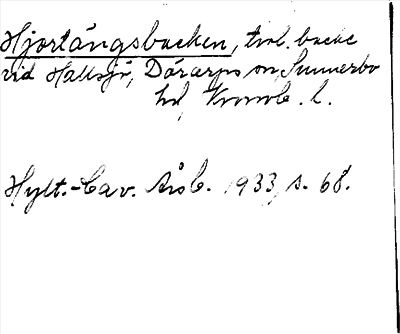 Hjortångsbacken, trol. backe
vid Hallsjö, Dörarps sn, Sunnerbo
hd, Kronob. l.
Hylt.-Cav. Årsb. 1933, s. 68.